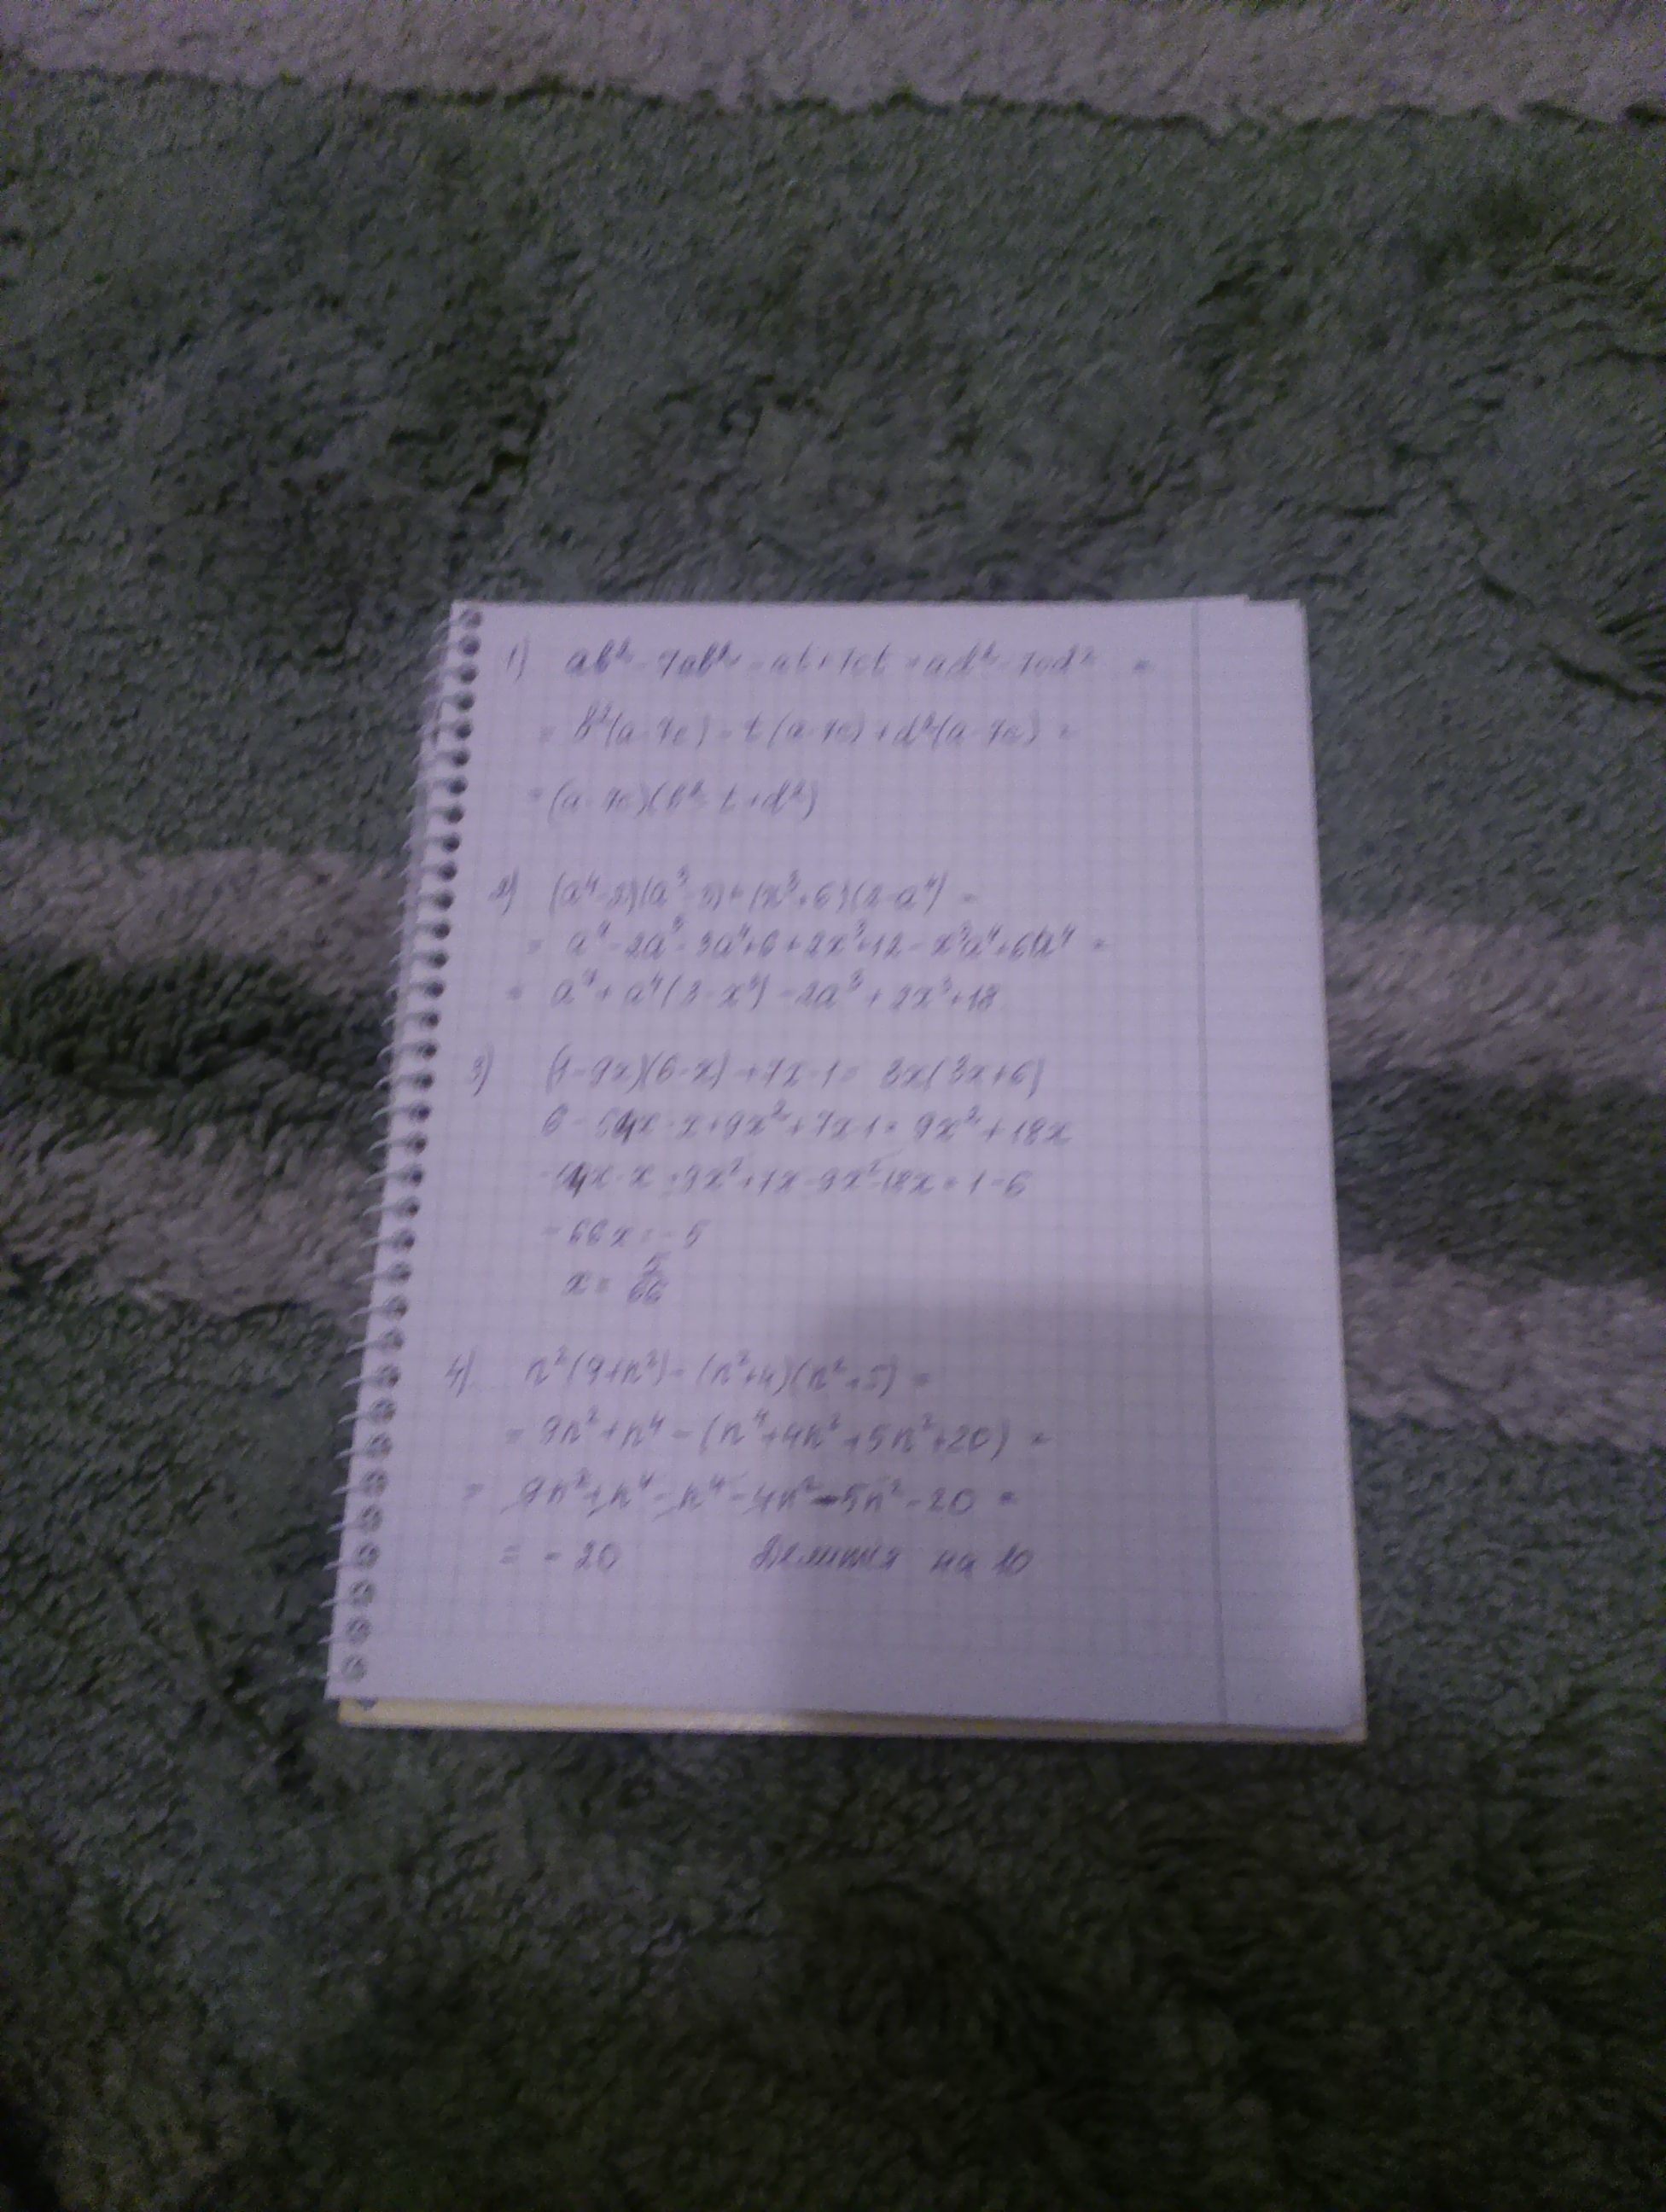 1) ab² - 7ab² - at + 7ct + ad² - 7cd² =
= b²(a - 7c) - t(a - 7c) + d²(a - 7c) =
= (a - 7c)(b² - t + d²)
2) (a⁴ - 2)(a³ - 3) + (x³ + 6)(2 - a⁴) =
= a⁷ - 2a³ - 3a⁴ + 6 + 2x³ + 12 - x³a⁴ + 6a⁴ =
= a⁷ + a⁴(3 - x³) - 2a³ + 2x³ + 18
3) (1 - 9x)(6 - x) + 7x - 1 = 3x(3x + 6)
6 - 54x - x + 9x² + 7x - 1 = 9x² + 18x
- 54x - x + 9x² + 7x - 9x² - 18x = 1 - 6
- 66x = - 5
x = 5/66
4) n²(9 + n²) - (n² + 4)(n² + 5) =
= 9n² + n⁴ - (n⁴ + 4n² + 5n² + 20) =
= 9n² + n⁴ - n⁴ - 4n² - 5n² - 20 =
= - 20 Делится на 10